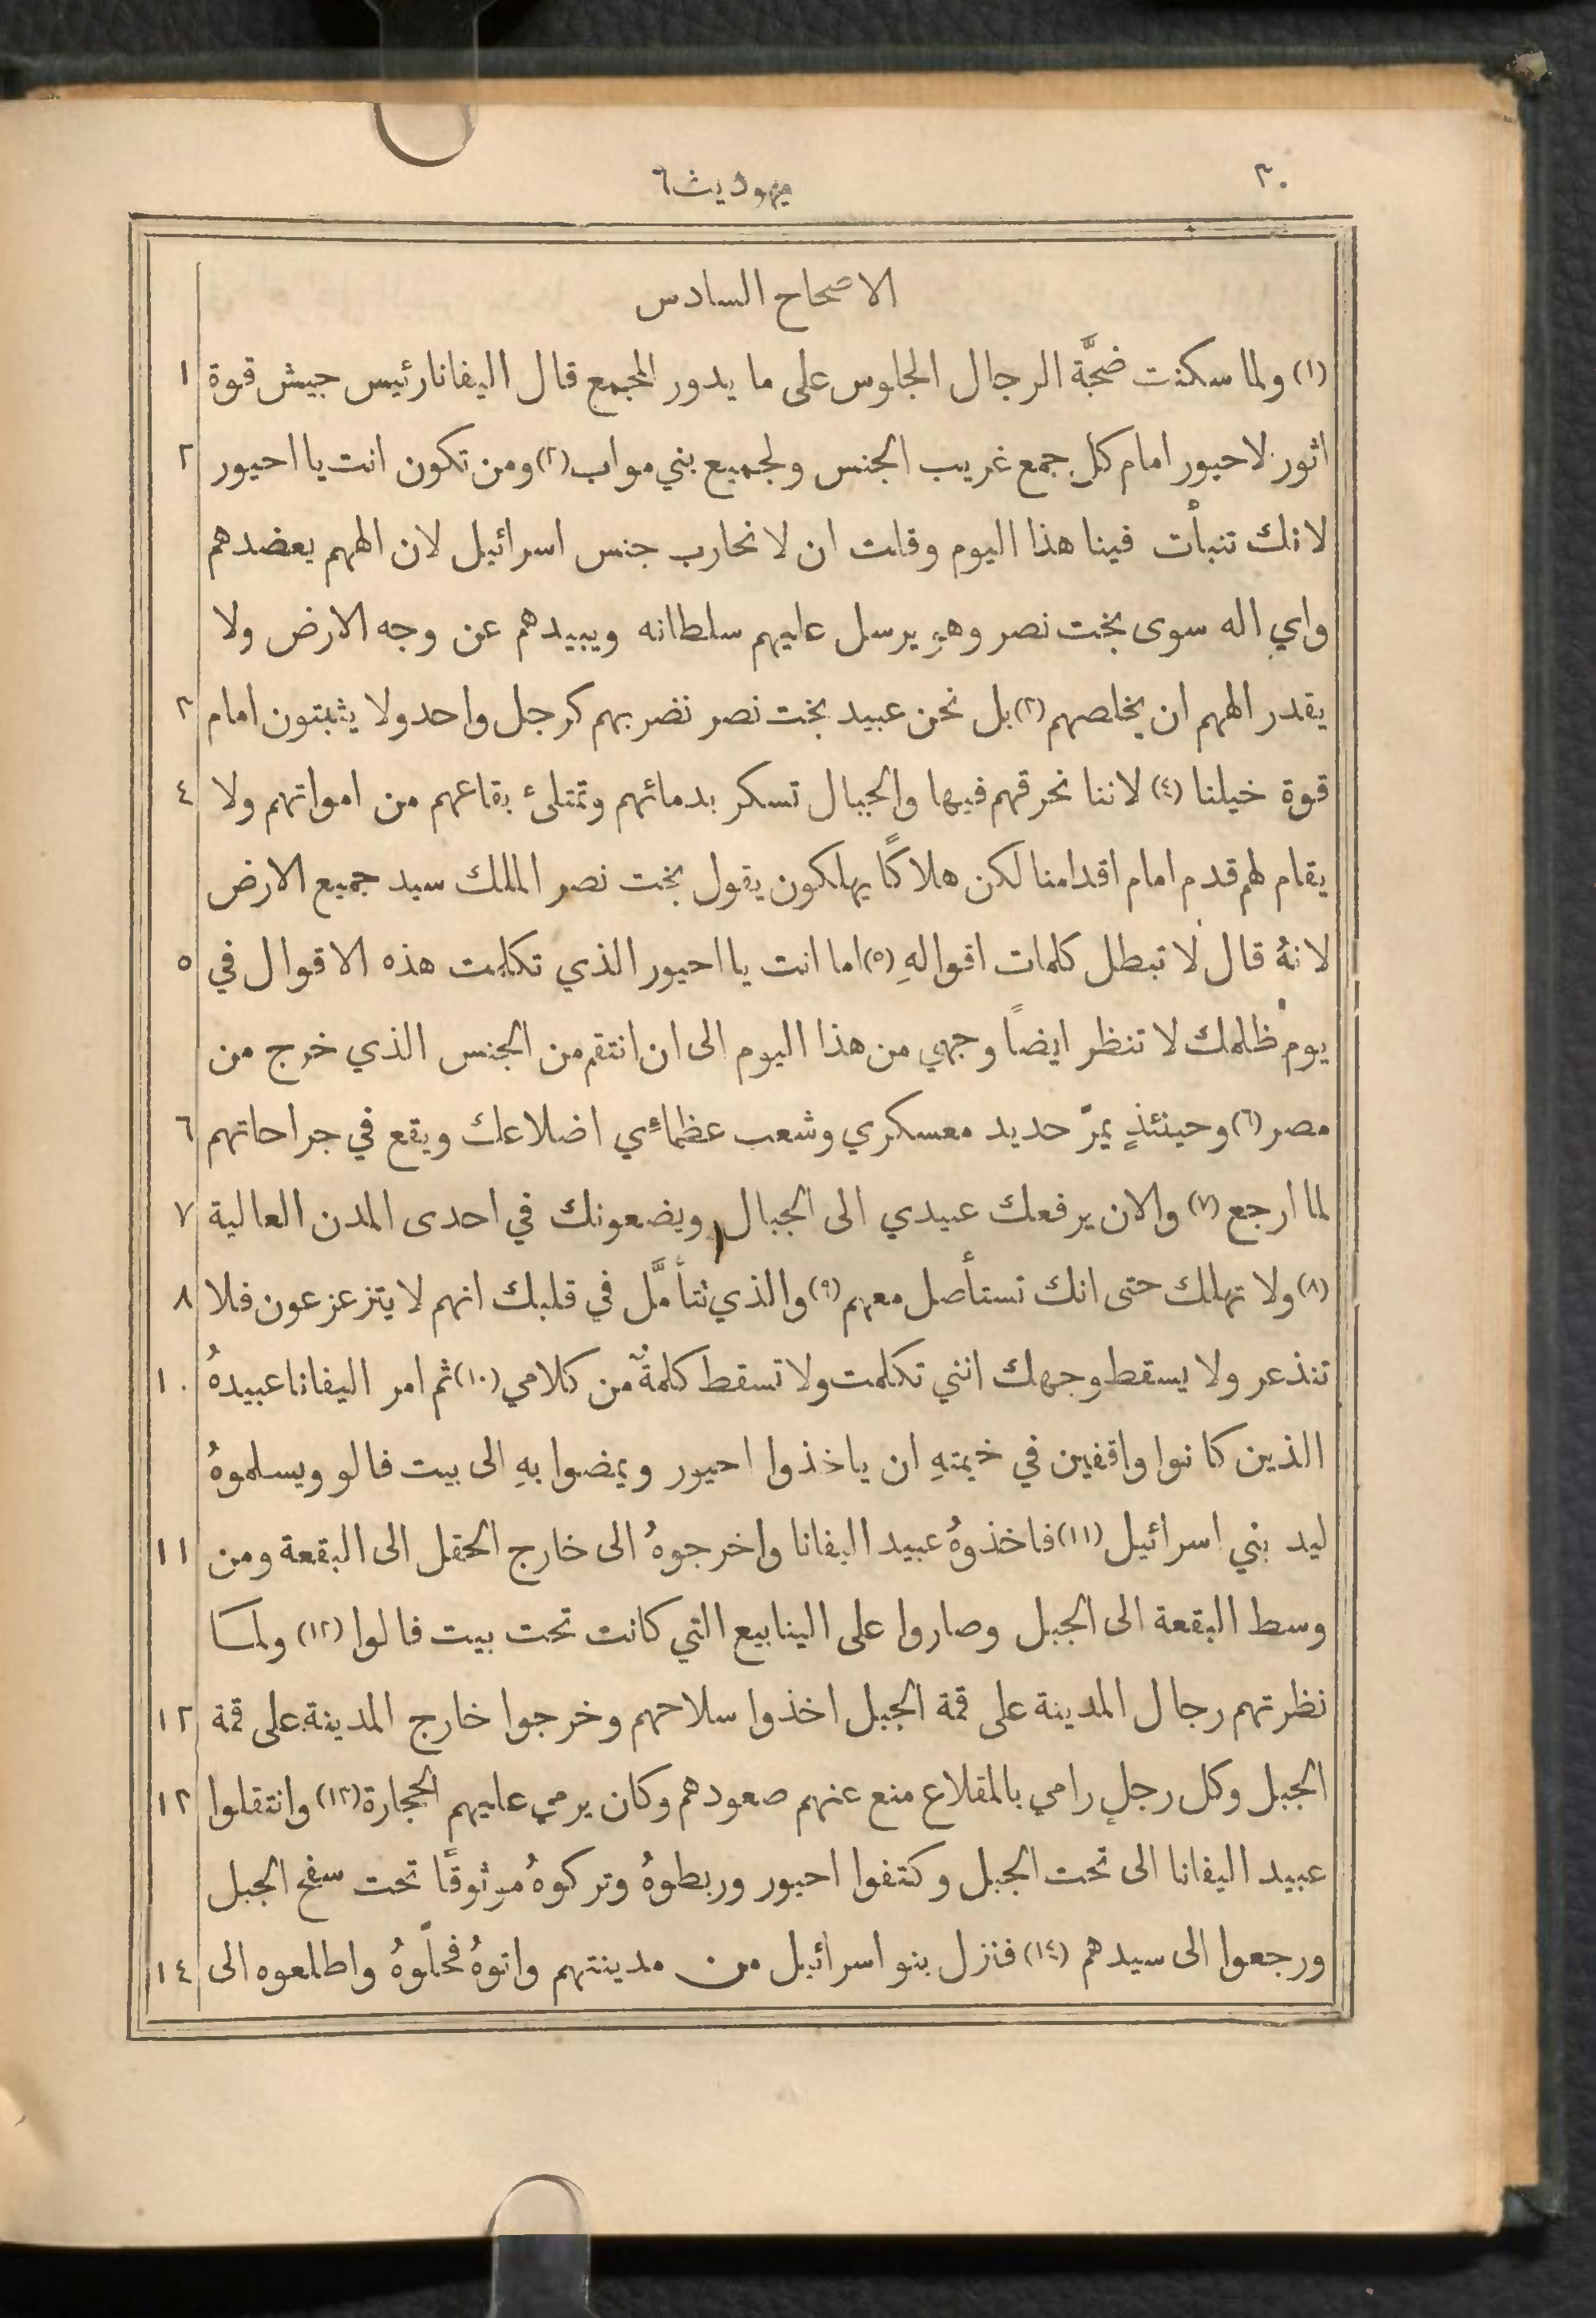 ٣٠
يهوديث ٦
الاصحاح السادس
(١) ولما سكنت ضجَّة الرجال الجلوس على ما يدور المجمع قال اليفانا رئيس جيش قوة ١
اثور لاحيور امام كل جمع غريب الجنس ولجميع بني مواب (٢) ومن تكون انت يا احيور ٢
لانك تنبأت فينا هذا اليوم وقلت ان لا نحارب جنس اسرائيل لان الههم يعضدهم
واي اله سوى بخت نصر وهو يرسل عليهم سلطانه ويبيدهم عن وجه الارض ولا
يقدر الههم ان يخلصهم (٣) بل نحن عبيد بخت نصر نضربهم كرجل واحد ولا يثبتون امام ٣
قوة خيلنا (٤) لاننا نحرقهم فيها والجبال تسكر بدمائهم وتمتلئ بقاعهم من امواتهم ولا ٤
يقام لهم قدم امام اقدامنا لكن هلاكًا يهلكون يقول بخت نصر الملك سيد جميع الارض
لانهُ قال لا تبطل كلمات اقوالهِ (٥) اما انت يا احيور الذي تكلمت هذه الاقوال في ٥
يوم ظلمك لا تنظر ايضًا وجهي من هذا اليوم الى ان انتقم من الجنس الذي خرج من
مصر (٦) وحينئذٍ يمرّ حديد معسكري وشعب عظمائي اضلاعك ويقع في جراحاتهم ٦
لما ارجع (٧) والان يرفعك عبيدي الى الجبال ويضعونك في احدى المدن العالية ٧
(٨) ولا تهلك حتى انك تستأصل معهم (٩) والذي تتأمَّل في قلبك انهم لا يتزعزعون فلا ٨
تنذعر ولا يسقط وجهك انني تكلمت ولا تسقط كلمةٌ من كلامي (١٠) ثم امر اليفانا عبيدهُ ١٠
الذين كانوا واقفين في خيمتهِ ان ياخذوا احيور ويمضوا بهِ الى بيت فالو ويسلموهُ
ليد بني اسرائيل (١١) فاخذوهُ عبيد اليفانا واخرجوهُ الى خارج الحقل الى البقعة ومن ١١
وسط البقعة الى الجبل وصاروا على الينابيع التي كانت تحت بيت فالوا (١٢) ولما
نظرتهم رجال المدينة على قمة الجبل اخذوا سلاحهم وخرجوا خارج المدينة على قمة ١٢
الجبل وكل رجلٍ رامي بالمقلاع منع عنهم صعودهم وكان يرمي عليهم الحجارة (١٣) وانتقلوا ١٣
عبيد اليفانا الى تحت الجبل وكتفوا احيور وربطوهُ وتركوهُ موثوقًا تحت سفح الجبل
ورجعوا الى سيدهم (١٤) فنزل بنو اسرائيل من مدينتهم واتوهُ فحلّوهُ واطلعوه الى ١٤